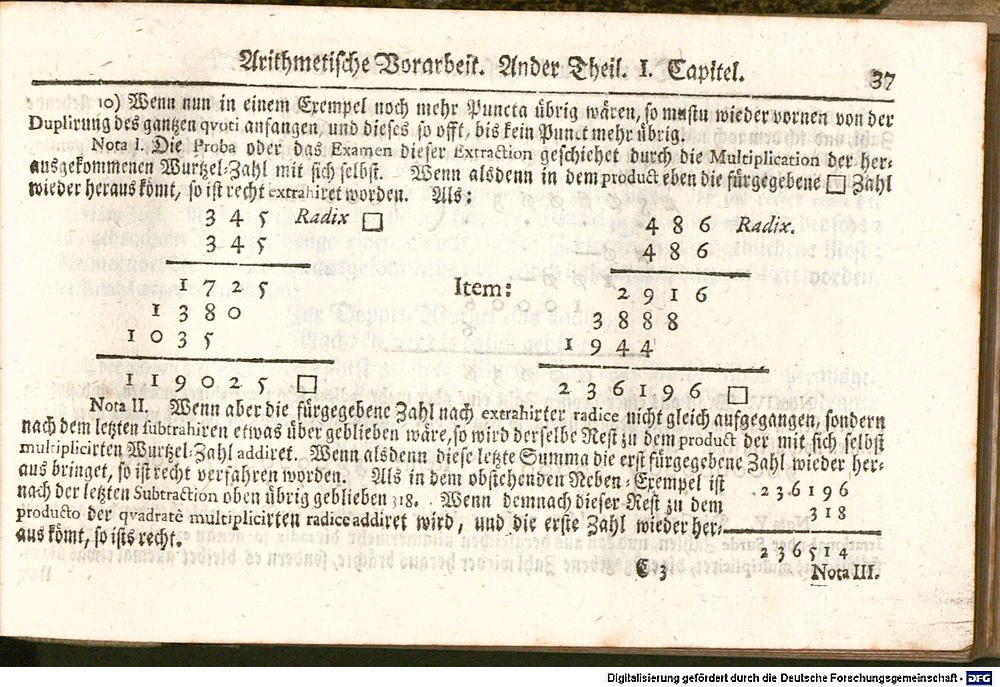 Arithmetische Vorarbeit. Ander Theil. I. Capitel.
37
10) Wenn nun in einem Exempel noch mehr Puncta übrig wären, so mustu wieder vornen von der
Duplirung des gantzen qvoti anfangen, und dieses so offt, bis kein Punct mehr übrig.
Nota I. Die Proba oder das Examen dieser Extraction geschiehet durch die Multiplication der her-
ausgekommenen Wurtzel-Zahl mit sich selbst. Wenn alsdenn in dem product eben die fürgegebene □ Zahl
wieder heraus kömt, so ist recht extrahiret worden. Als:
3 4 5 Radix □
3 4 5
1 7 2 5
1 3 8 0
1 0 3 5
1 1 9 0 2 5 □
Item:
4 8 6 Radix.
4 8 6
2 9 1 6
3 8 8 8
1 9 4 4
2 3 6 1 9 6 □
Nota II. Wenn aber die fürgegebene Zahl nach extrahirter radice nicht gleich aufgegangen, sondern
nach dem letzten subtrahiren etwas über geblieben wäre, so wird derselbe Rest zu dem product der mit sich selbst
multiplicirten Wurtzel-Zahl addiret. Wenn alsdenn diese letzte Summa die erst fürgegebene Zahl wieder her-
aus bringet, so ist recht verfahren worden. Als in dem obstehenden Neben-Exempel ist
nach der letzten Subtraction oben übrig geblieben 318. Wenn demnach dieser Rest zu dem
producto der qvadratè multiplicirten radice addiret wird, und die erste Zahl wieder her-
aus kömt, so ists recht.
2 3 6 1 9 6
3 1 8
2 3 6 5 1 4
C 3
Nota III.
Digitalisierung gefördert durch die Deutsche Forschungsgemeinschaft - DFG